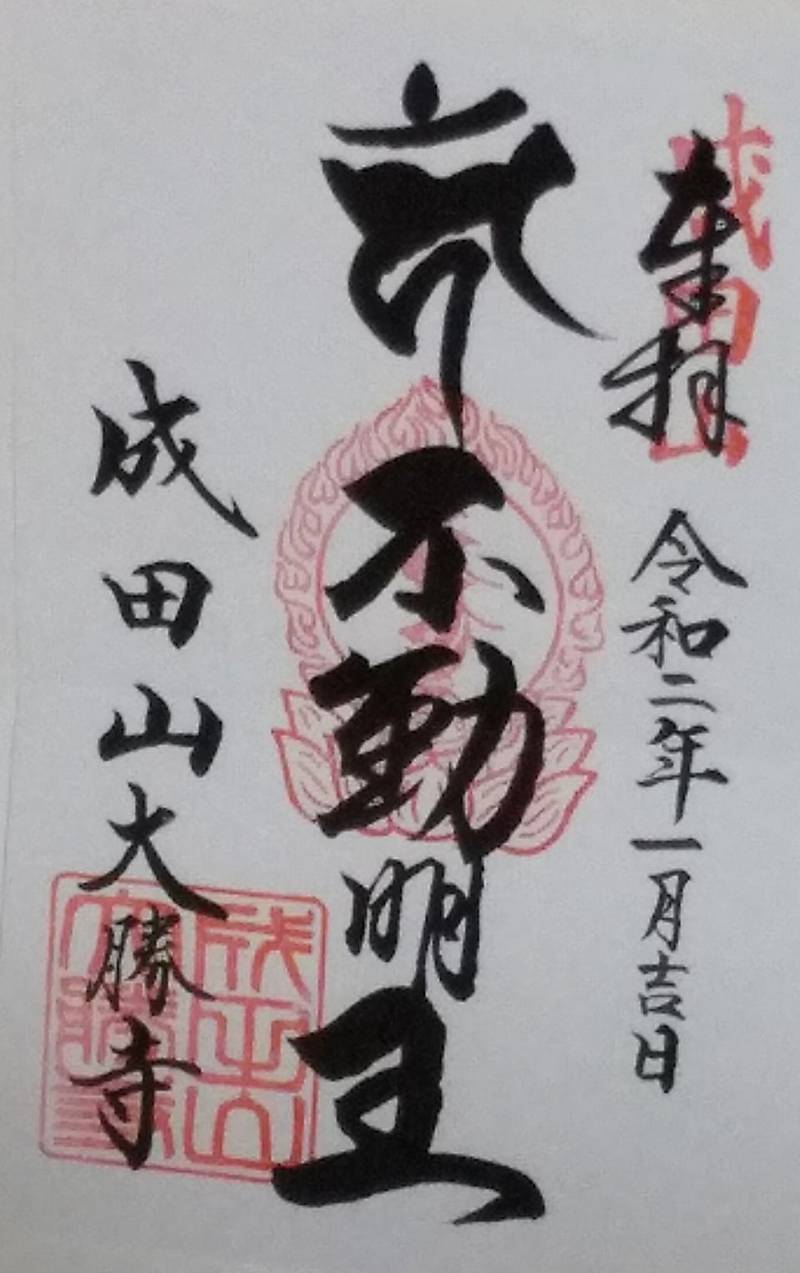 奉拝
令和二年一月吉日
不動明王
成田山大勝寺
成田山
成田山大勝寺